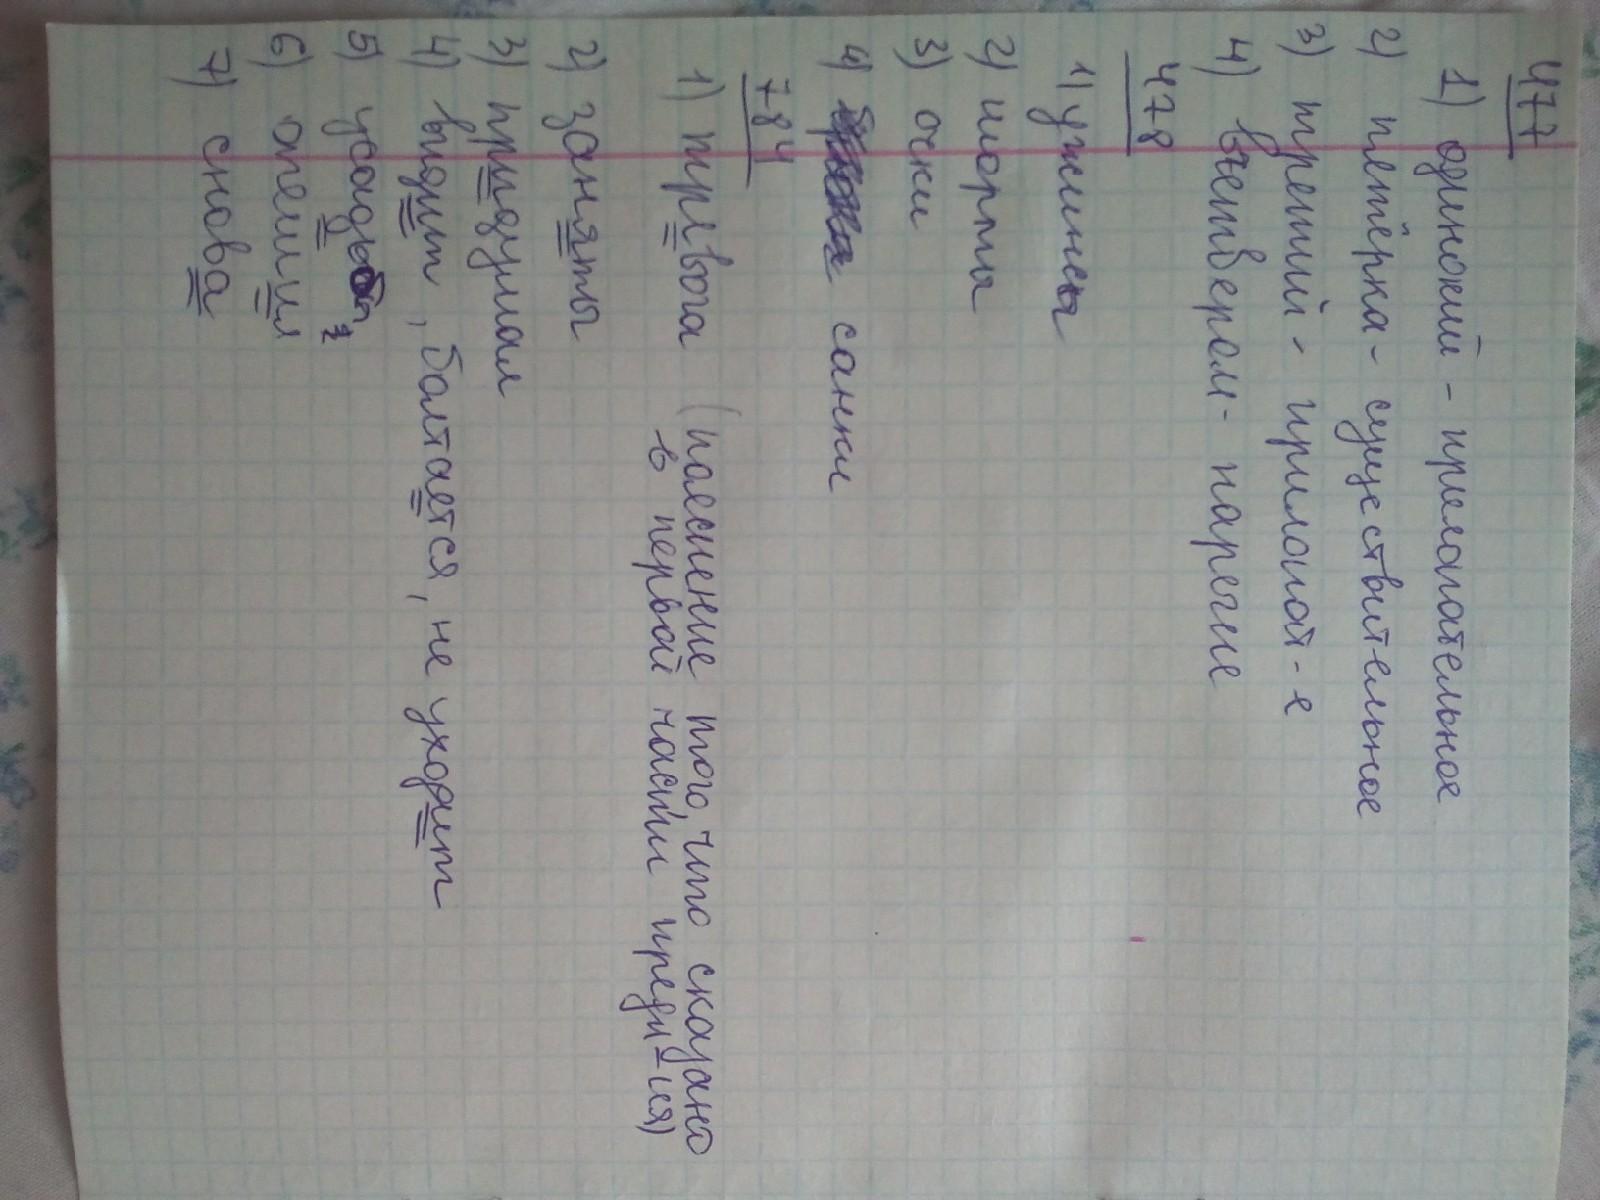 477
1) одинокий - прилагательное
2) пятёрка - существительное
3) третий - прилагат-е
4) вчетвером - наречие
478
1) ужины
2) шорты
3) очки
4) санки
784
1) тревога (пояснение того, что сказано
в первой части предл-ия)
2) заняты
3) придумал
4) видит, болтается, не уходит
5)
6)
7) снова